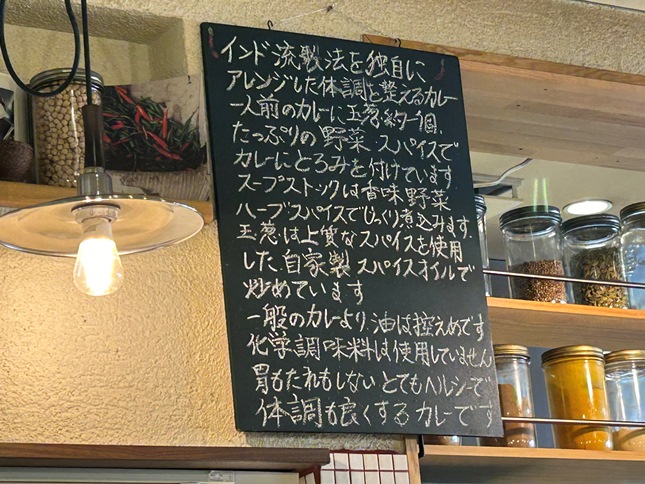 インド流製法を独自に
アレンジした体調を整えるカレー
一人前のカレーに玉葱約一個、
たっぷりの野菜 スパイスで
カレーにとろみを付けています
スープストックは香味野菜
ハーブスパイスでじっくり煮込みます
玉葱は上質なスパイスを使用
した自家製スパイスオイルで
炒めています
一般のカレーより、油は控えめです
化学調味料は使用していません
胃もたれもしない とてもヘルシーで
体調も良くするカレーです